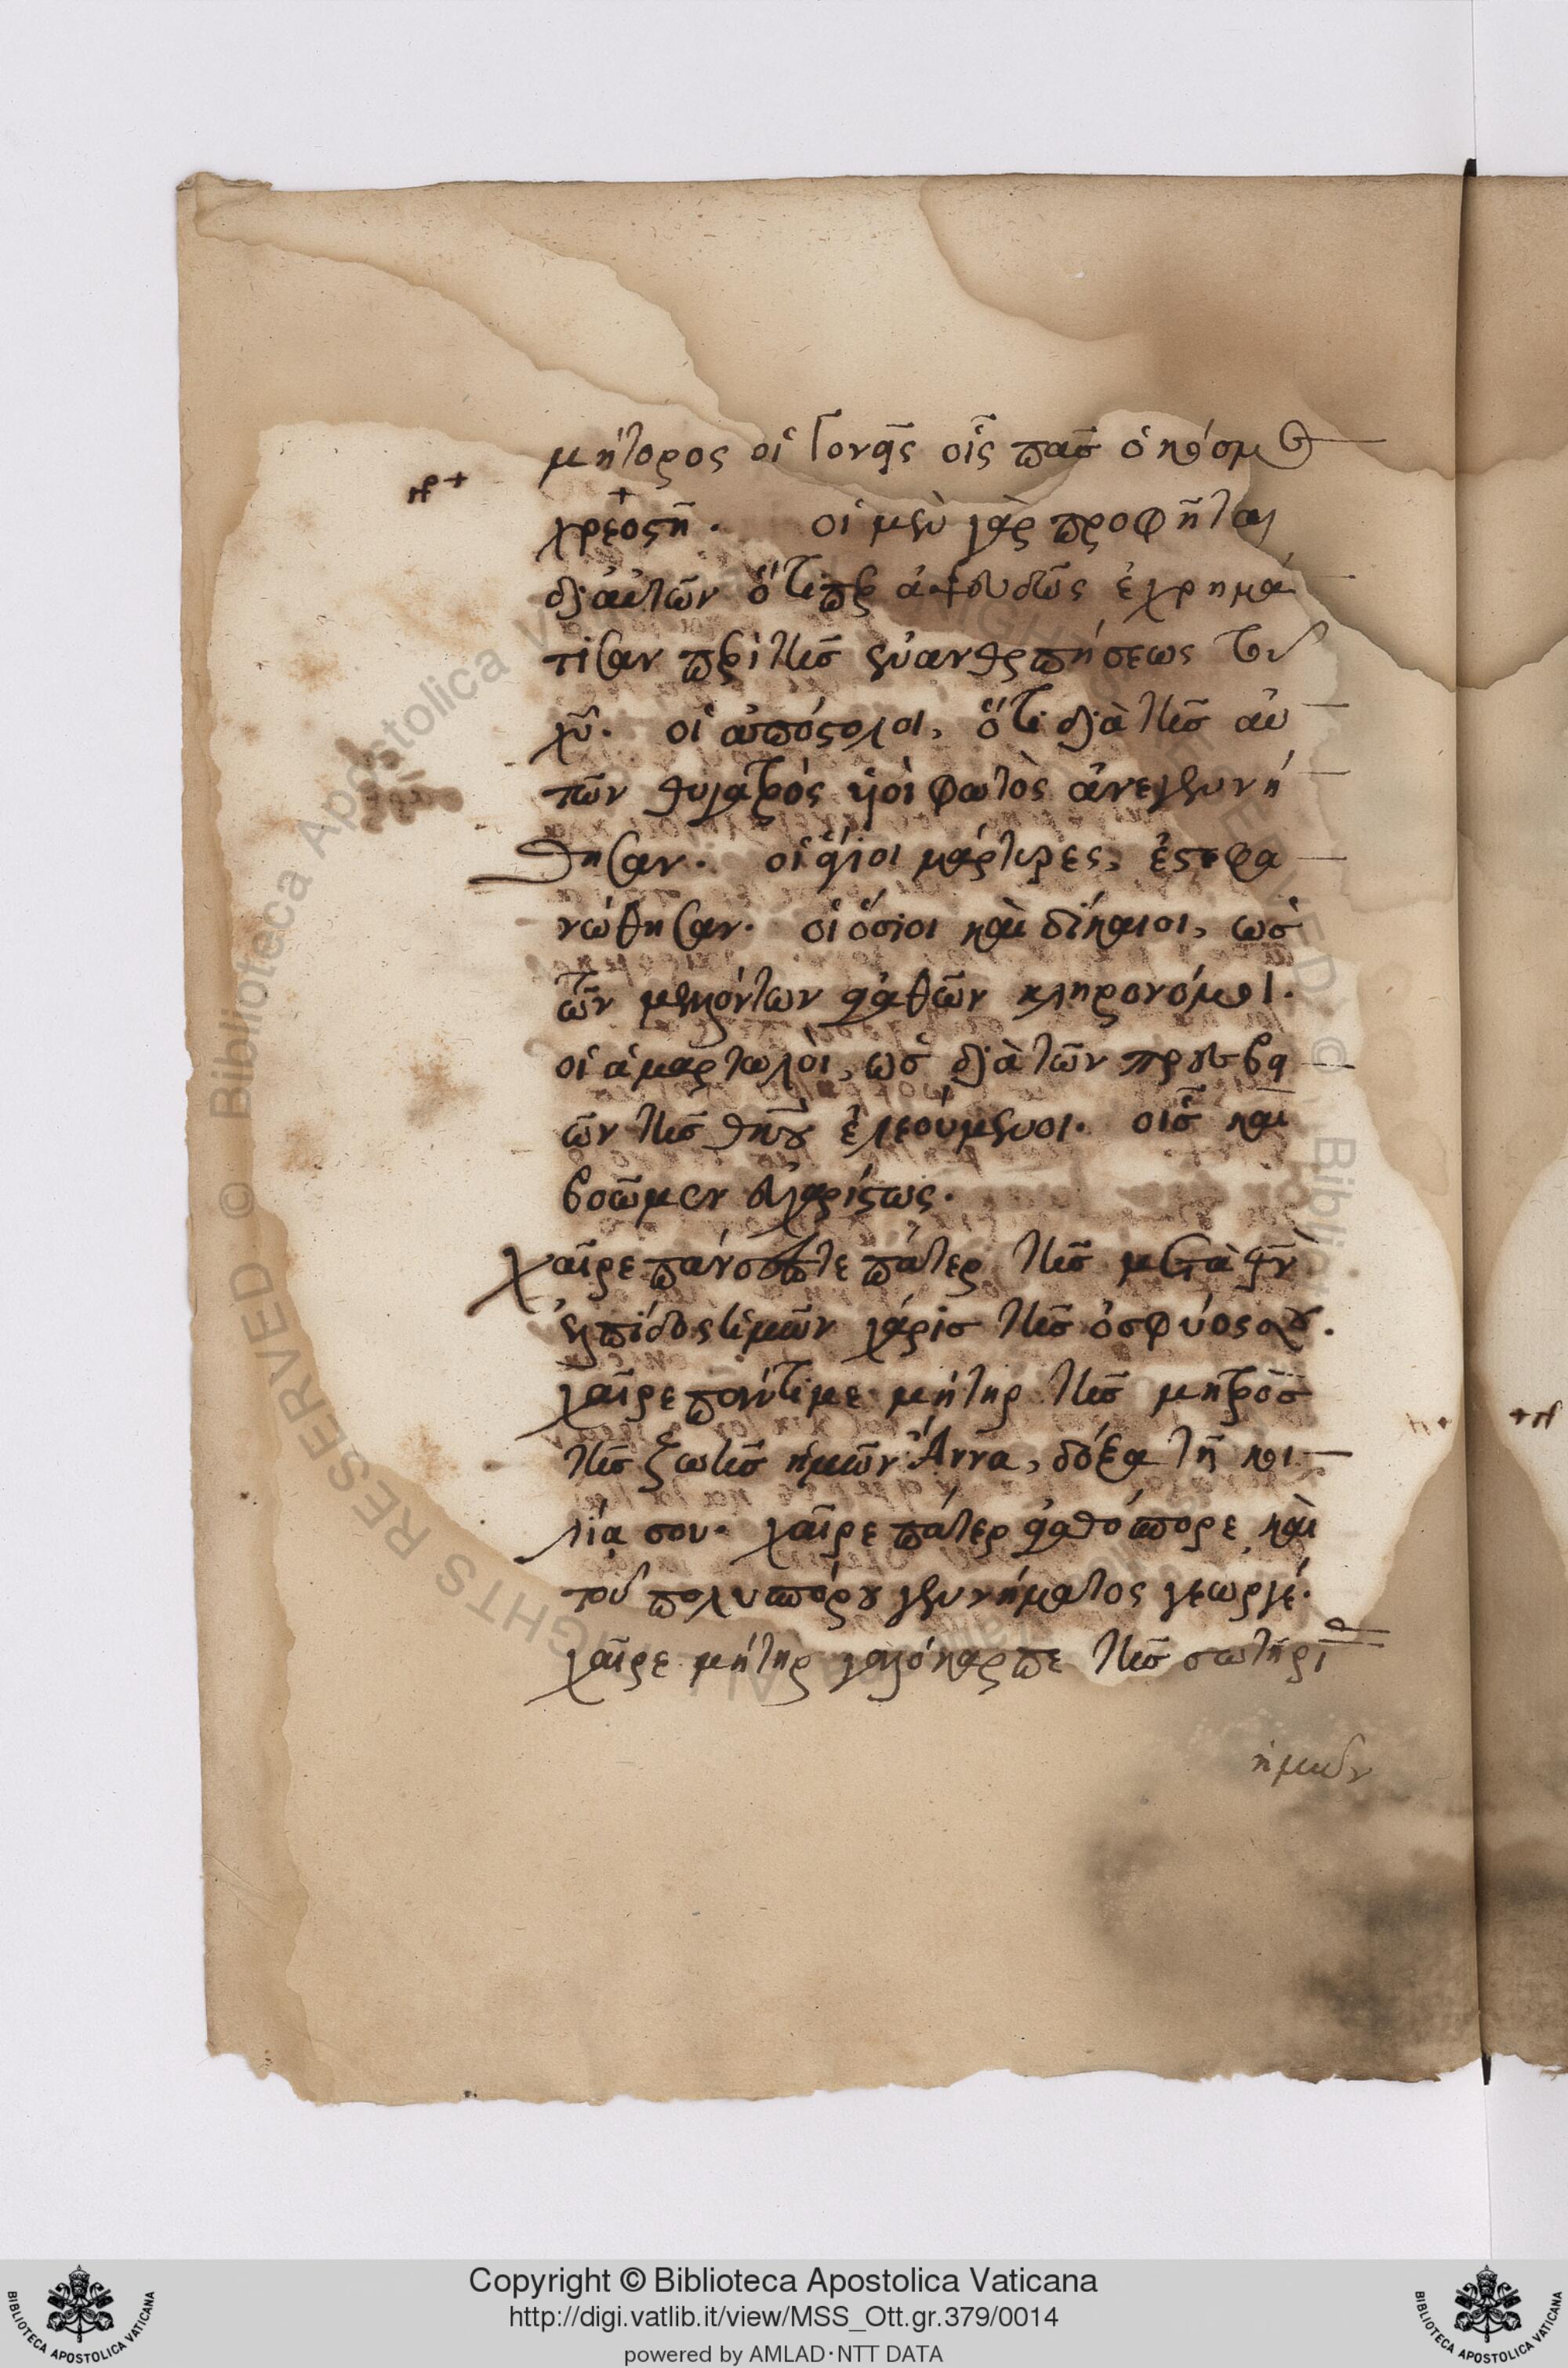 μήτορος οἱ γονεῖς οἷς πᾶσ ὁ κόσμος
χρεοστῆ. οἱ μὲν γὰρ προφῆται
δι αὐτῶν ὅτιπερ ἀψευδῶς ἐχρημά
τισαν περὶ τῆσ ἐνανθρωπήσεως τοῦ
χῦ. οἱ ἀπόστολοι, ὅτι διὰ τῆσ αὐ
τῶν θυγατρὸς υἱοὶ φωτὸς ἀνεγεννή
θησαν. οἱ ἅγιοι μάρτυρες, ἐστεφα
νώθησαν. οἱ ὅσιοι καὶ δίκαιοι, ὡσ
τῶν μελλόντων ἀγαθῶν κληρονόμοι.
οἱ ἁμαρτωλοὶ, ὡσ διὰ τῶν πρεσβει
ῶν τῆσ θκου ἐλεούμενοι. οἷσ καὶ
βοῶμεν εὐχαρίστως.
χαῖρε πάνσεπτε πάτερ τῆσ μετὰ θν
ἐλπίδος ἡμῶν χάρισ τῆσ ὀσφύος σου.
χαῖρε πάντιμε μήτηρ τῆσ μητρὸσ
τῆσ ζωῆσ ἡμῶν Ἄννα, δόξα τῆ κοι
λία σου. χαῖρε πάτερ ἀγαθόσπορε καὶ
τοῦ πολυσπόρου γεννήματος γεωργέ.
χαῖρε μήτηρ καλόκαρπε τῆσ σωτηρί
ἡμῶν
Copyright © Biblioteca Apostolica Vaticana
http://digi.vatlib.it/view/MSS_Ott.gr.379/0014
powered by AMLAD·NTT DATA